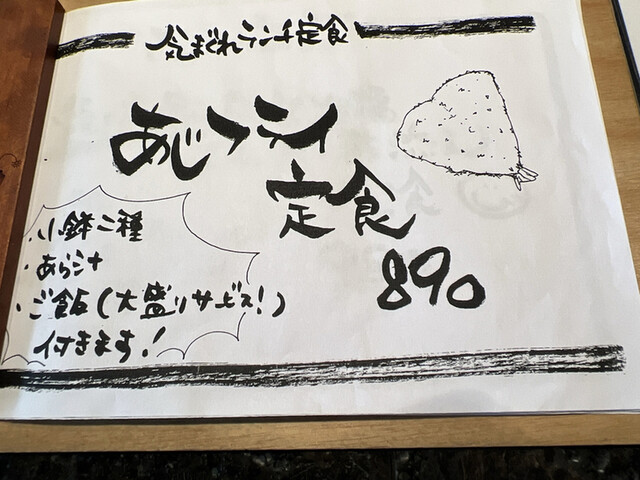 気まぐれランチ定食
あじフライ
定食
890
・小鉢二種
・あら汁
・ご飯(大盛りサービス!)
付きます!